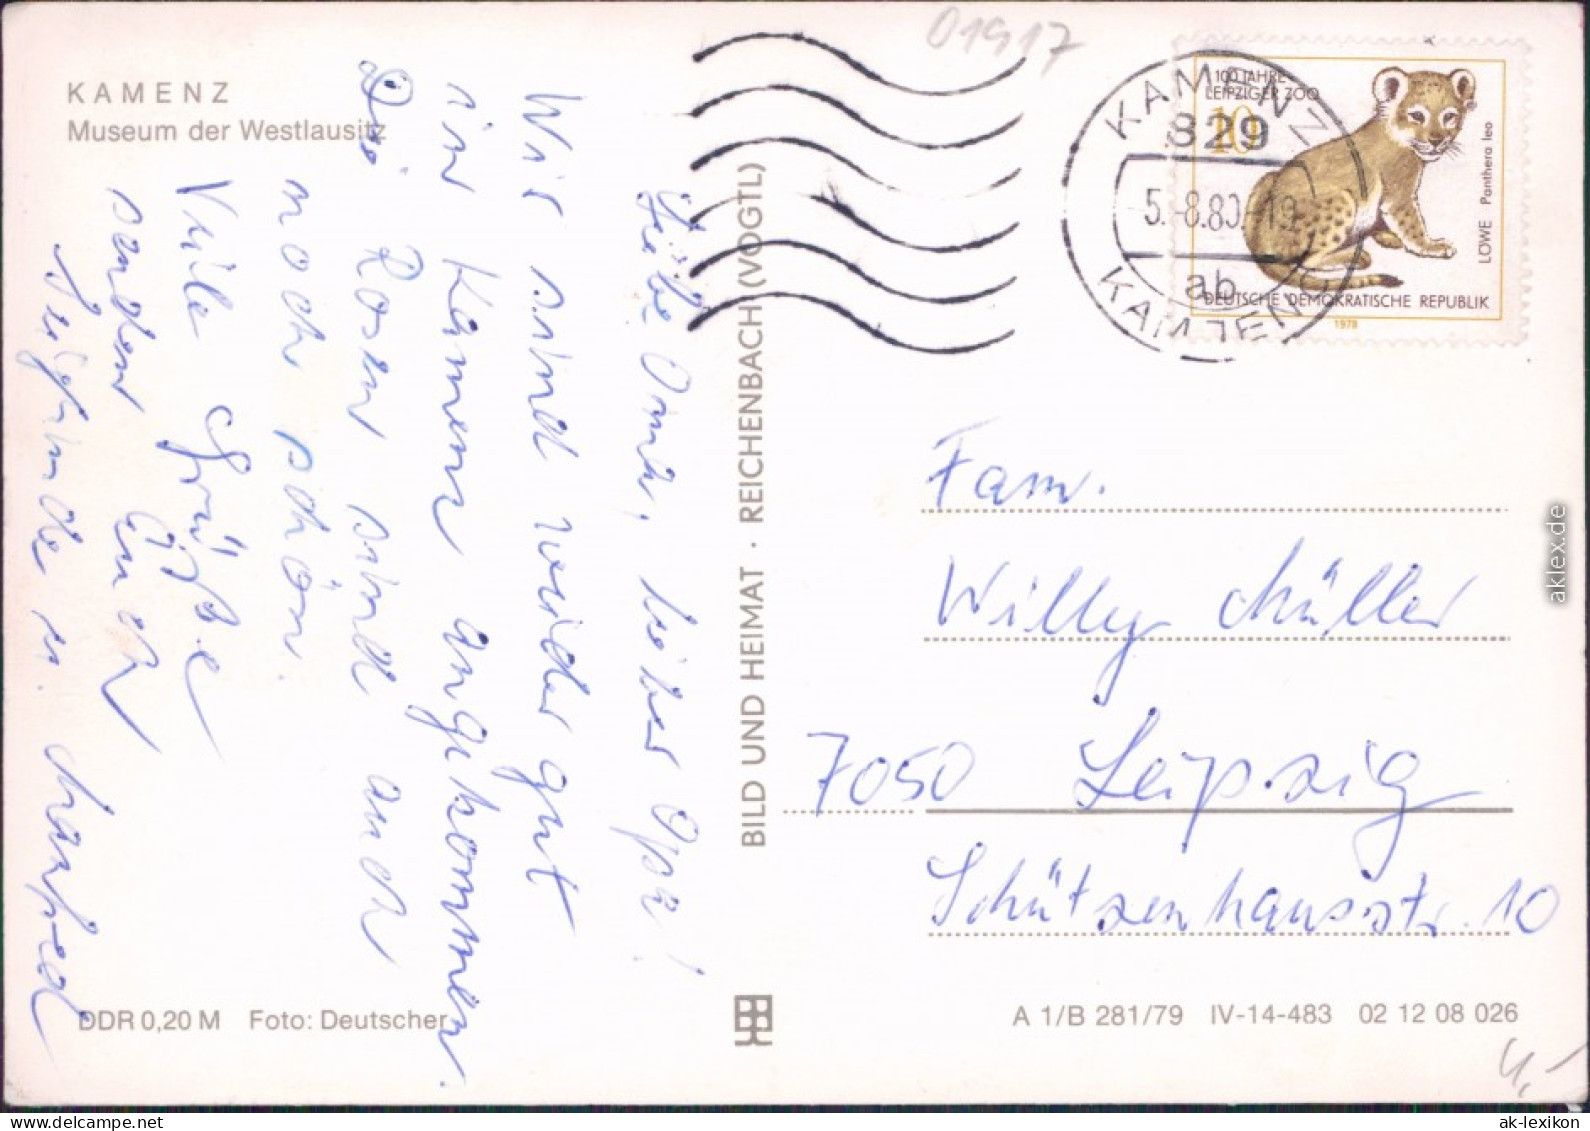 KAMENZ
Museum der Westlausitz
01917
100 JAHRE
LEIPZIGER ZOO
10
LÖWE Panthera leo
DEUTSCHE DEMOKRATISCHE REPUBLIK
1978
KAMENZ
829
5.-8.80-19
ab
KAMENZ
Liebe Oma, lieber Opa!
Wir sind wieder gut
in Kamenz angekommen.
Die Rosen sind auch
noch schön.
Viele Grüße
senden Euch
Sieglinde u. Manfred
BILD UND HEIMAT · REICHENBACH (VOGTL)
Fam.
Willy Müller
7050 Leipzig
Schützenhausstr. 10
DDR 0,20 M Foto: Deutscher
A 1/B 281/79 IV-14-483 02 12 08 026
4,-
aklex.de
ak-lexikon